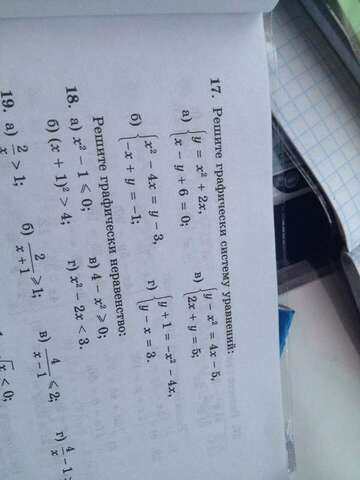 17. Решите графически систему уравнений:
а) { y = x² + 2x, x − y + 6 = 0;
в) { y − x² = 4x − 5, 2x + y = 5;
б) { x² − 4x = y − 3, −x + y = −1;
г) { y + 1 = −x² − 4x, y − x = 3.
Решите графически неравенство:
18. а) x² − 1 ⩽ 0; в) 4 − x² ⩾ 0;
б) (x + 1)² > 4; г) x² − 2x < 3.
19. а) 2/x > 1; б) 2/(x + 1) ⩾ 1; в) 4/(x − 1) ⩽ 2; г) 4/x − 1